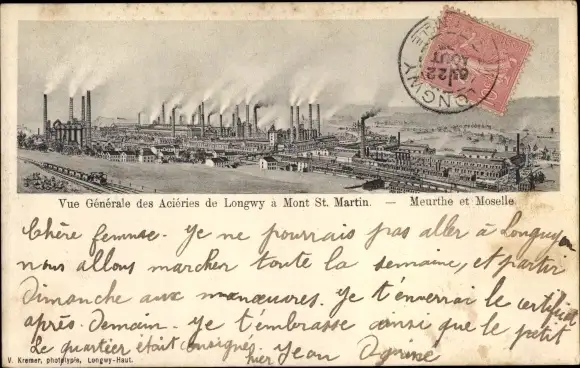 LONGWY
22
AOUT
Vue Générale des Aciéries de Longwy à Mont St. Martin. — Meurthe et Moselle.
Chère femme. Je ne pourrais pas aller à Longuyon
nous allons marcher toute la semaine, et partir
Dimanche aux manœuvres. Je t'enverrai le certificat
après-Demain. Je t'embrasse ainsi que le petit
Le quartier était consigné hier Jean
V. Kremer, phototypie, Longwy-Haut.